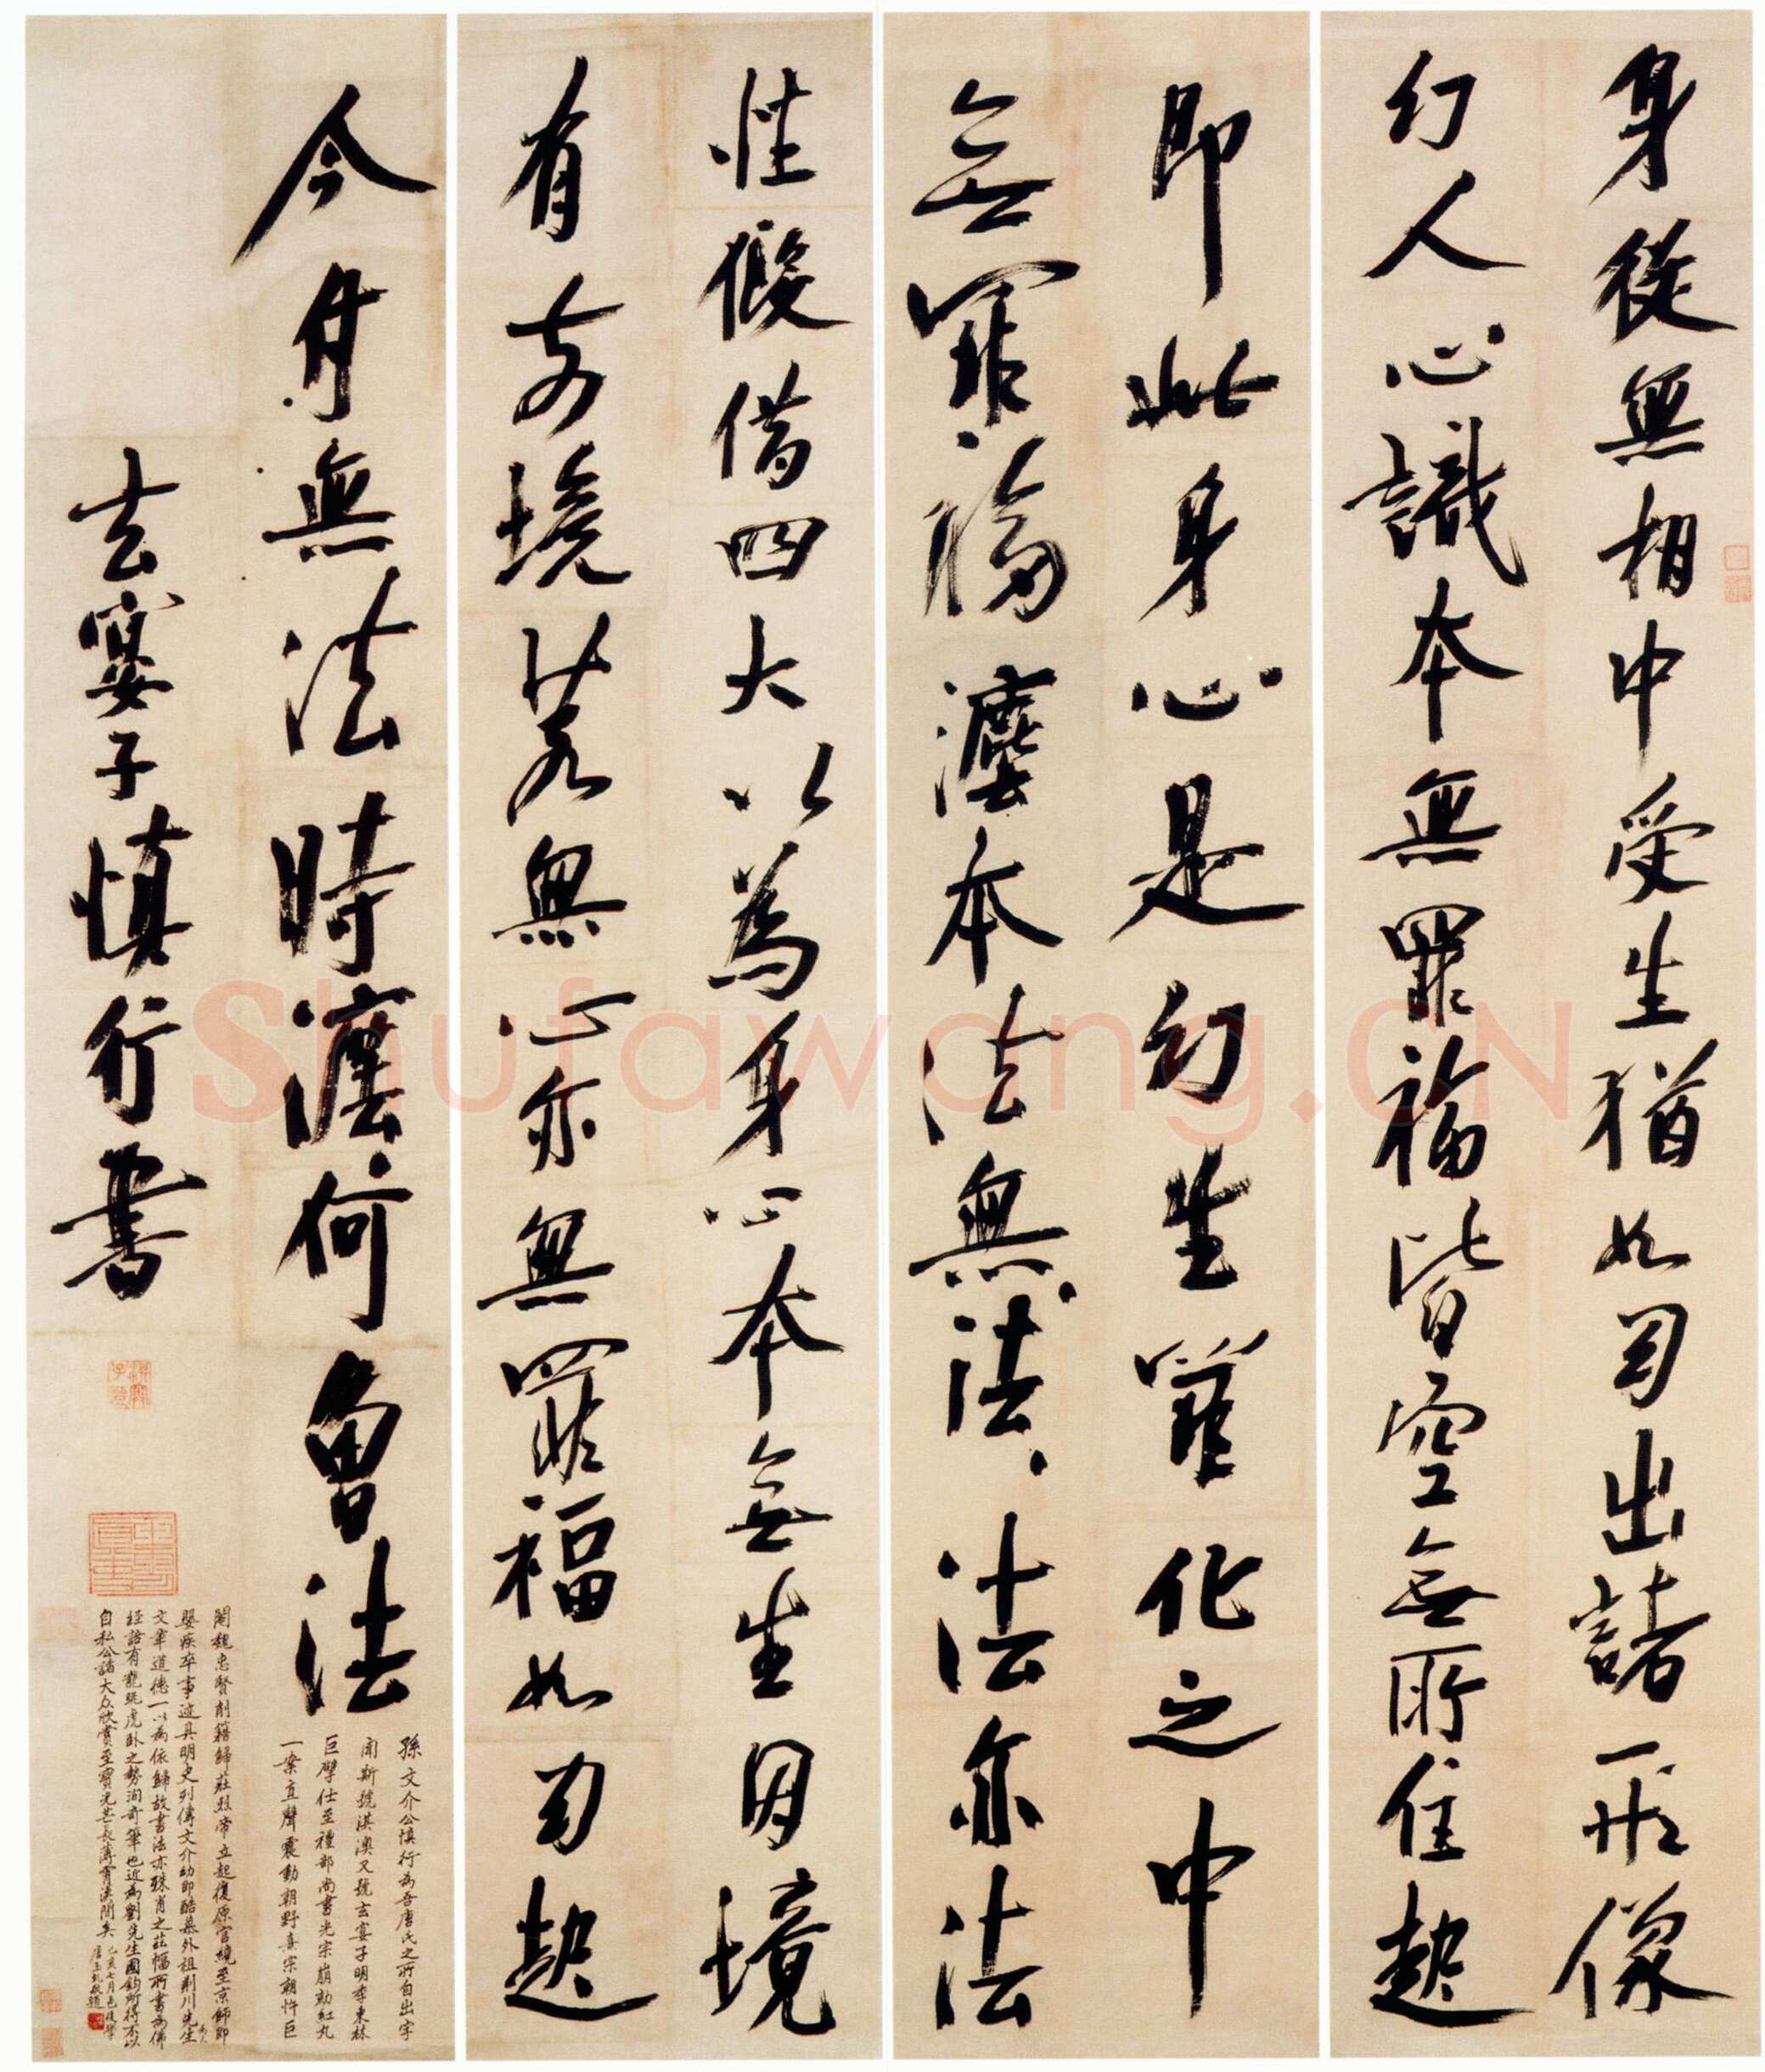 身從無相中受生猶如幻出諸形像
幻人心識本無罪福皆空無所住起
即此身心是幻生罪化之中
無罪福灋本法無法法亦法
性假借四大以為身心本無生因境
有前境若無心亦無罪福如幻起
今付無法時灋何曾法
玄宴子慎行書
孫文介公慎行為吾唐氏之所自出字
聞斯號淇澳又號玄宴子明季東林
巨擘仕至禮部尚書光宗崩劾紅丸
一案直聲震動朝野熹宗朝忤巨
閹魏忠賢削籍歸莊烈帝立起復原官纔至京師即
嬰疾卒事迹具明史列傳文介幼即酷慕外祖荊川先生為人
文章道德一以為依歸故書法亦殊肖之茲幅所書為佛
經語有龍跳虎卧之勢洵奇筆也近為劉先生國鈞所得不以
自私公諸大众欣賞至寶光芒長薄霄漢間矣 己亥七月邑後學
唐玉虬敬題
Shufawang.CN